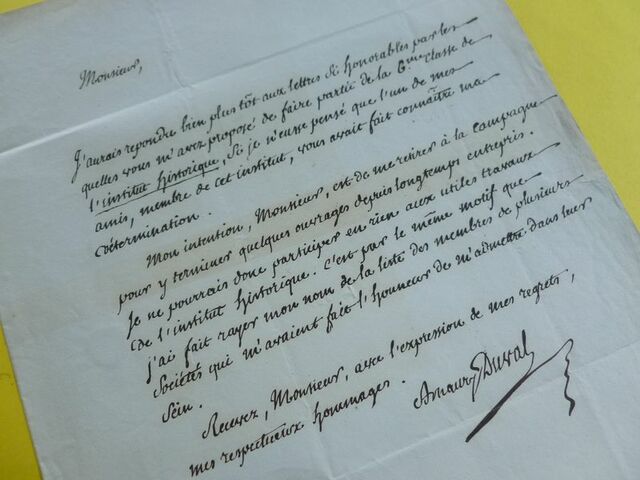 Monsieur,
J'aurais repondre bien plus tôt aux lettres si honorables par les
quelles vous m'avez proposé de faire partie de la 6me classe de
l'institut historique, si je n'eusse pensé que l'un de mes
amis, membre de cet institut, vous avait fait connaître ma
détermination.
Mon intention, Monsieur, est de me retirer à la campagne
pour y terminer quelques ouvrages depuis longtemps entrepris.
Je ne pourrais donc participer en rien aux utiles travaux
de l'institut historique. C'est par le même motif que
j'ai fait rayer mon nom de la liste des membres de plusieurs
Sociétés qui m'avaient fait l'honneur de m'admettre dans leur
Sein.
Recevez, Monsieur, avec l'expression de mes regrets,
mes respectueux hommages.
Amaury Duval